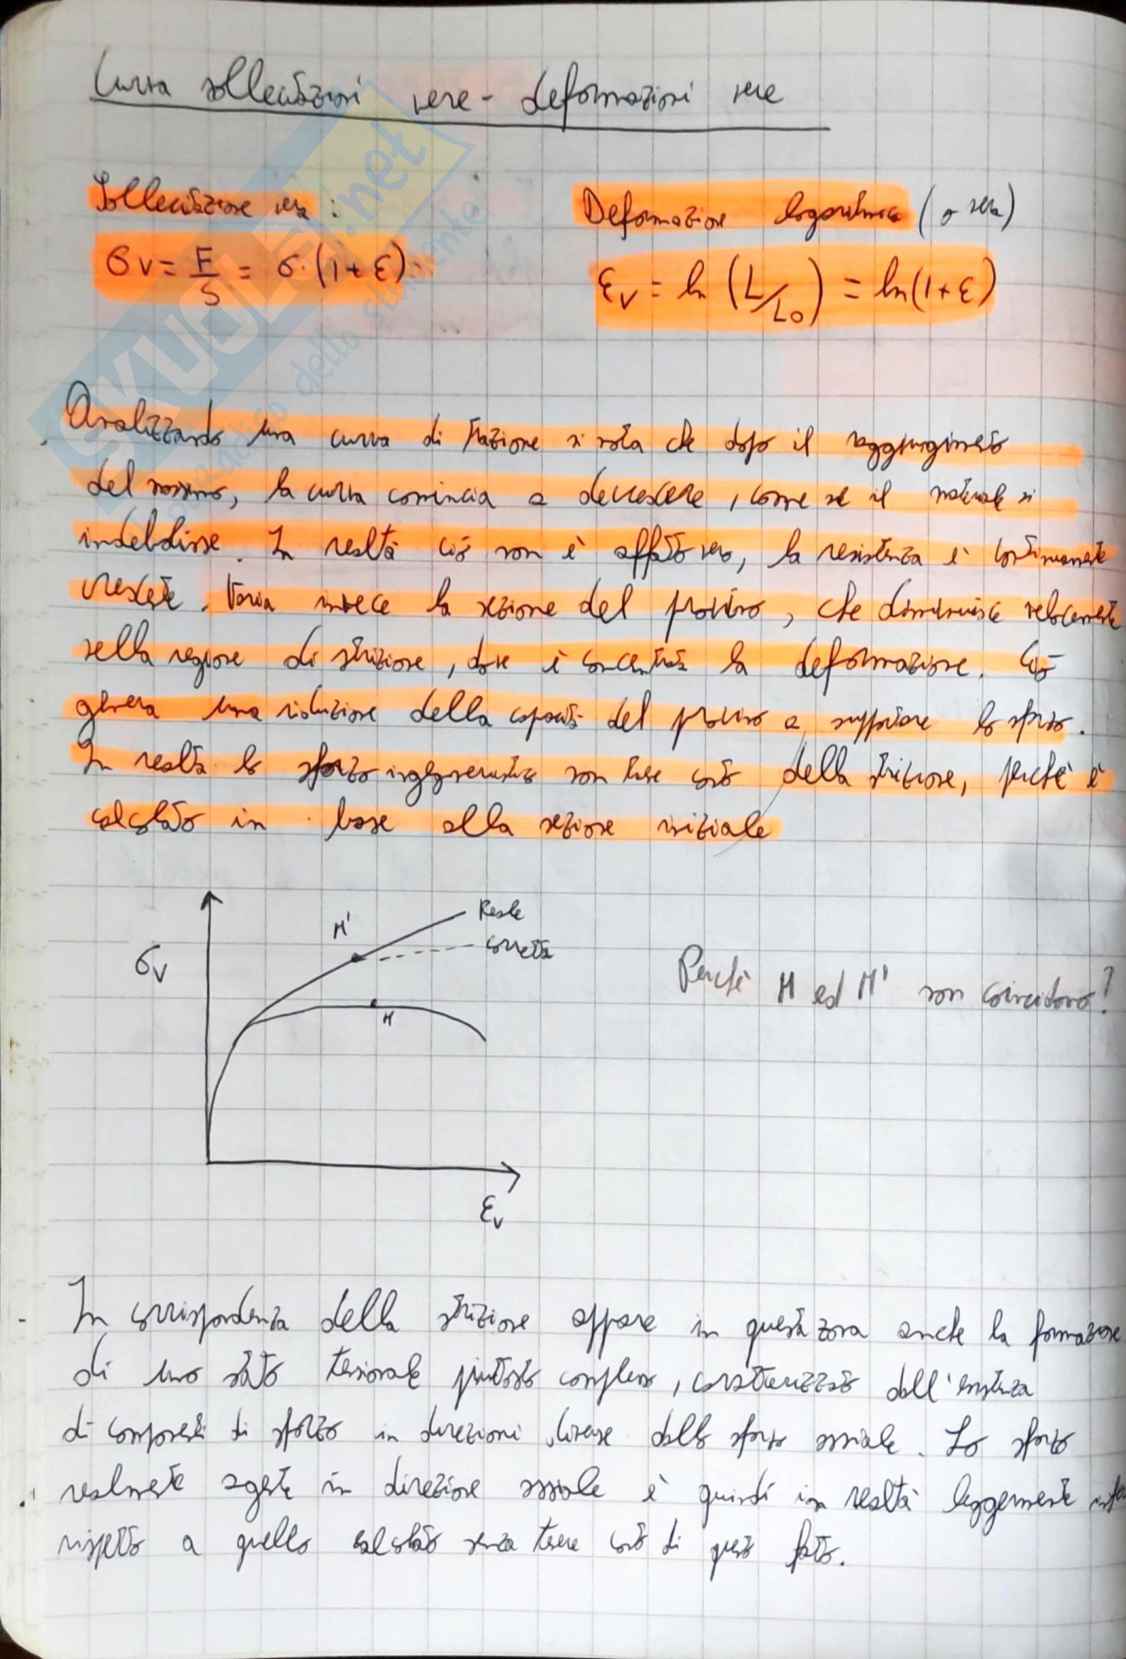 Curva sollecitazioni vere - deformazioni vere
Sollecitazione vera :
Deformazione logaritmica (o vera)
σv = F/S = σ·(1+ε)
εv = ln (L/L0) = ln(1+ε)
Analizzando una curva di trazione si nota che dopo il raggiungimento
del massimo, la curva comincia a decrescere, come se il materiale si
indebolisse. In realtà ciò non è affatto vero, la resistenza è continuamente
crescente. Varia invece la sezione del provino, che diminuisce velocemente
nella regione di strizione, dove è concentrata la deformazione. Ciò
genera una riduzione della capacità del provino a supportare lo sforzo.
In realtà lo sforzo ingegneristico non tiene conto della strizione, perché è
calcolato in base alla sezione iniziale
σv
M'
Reale
corretta
M
εv
Perché M ed M' non coincidono?
- In corrispondenza della strizione appare in questa zona anche la formazione
di uno stato tensionale piuttosto complesso, caratterizzato dall'esistenza
di componenti di sforzo in direzioni diverse dallo sforzo assiale. Lo sforzo
realmente agente in direzione assiale è quindi in realtà leggermente
rispetto a quello calcolato senza tenere conto di questo fatto.
SKUOLA.net